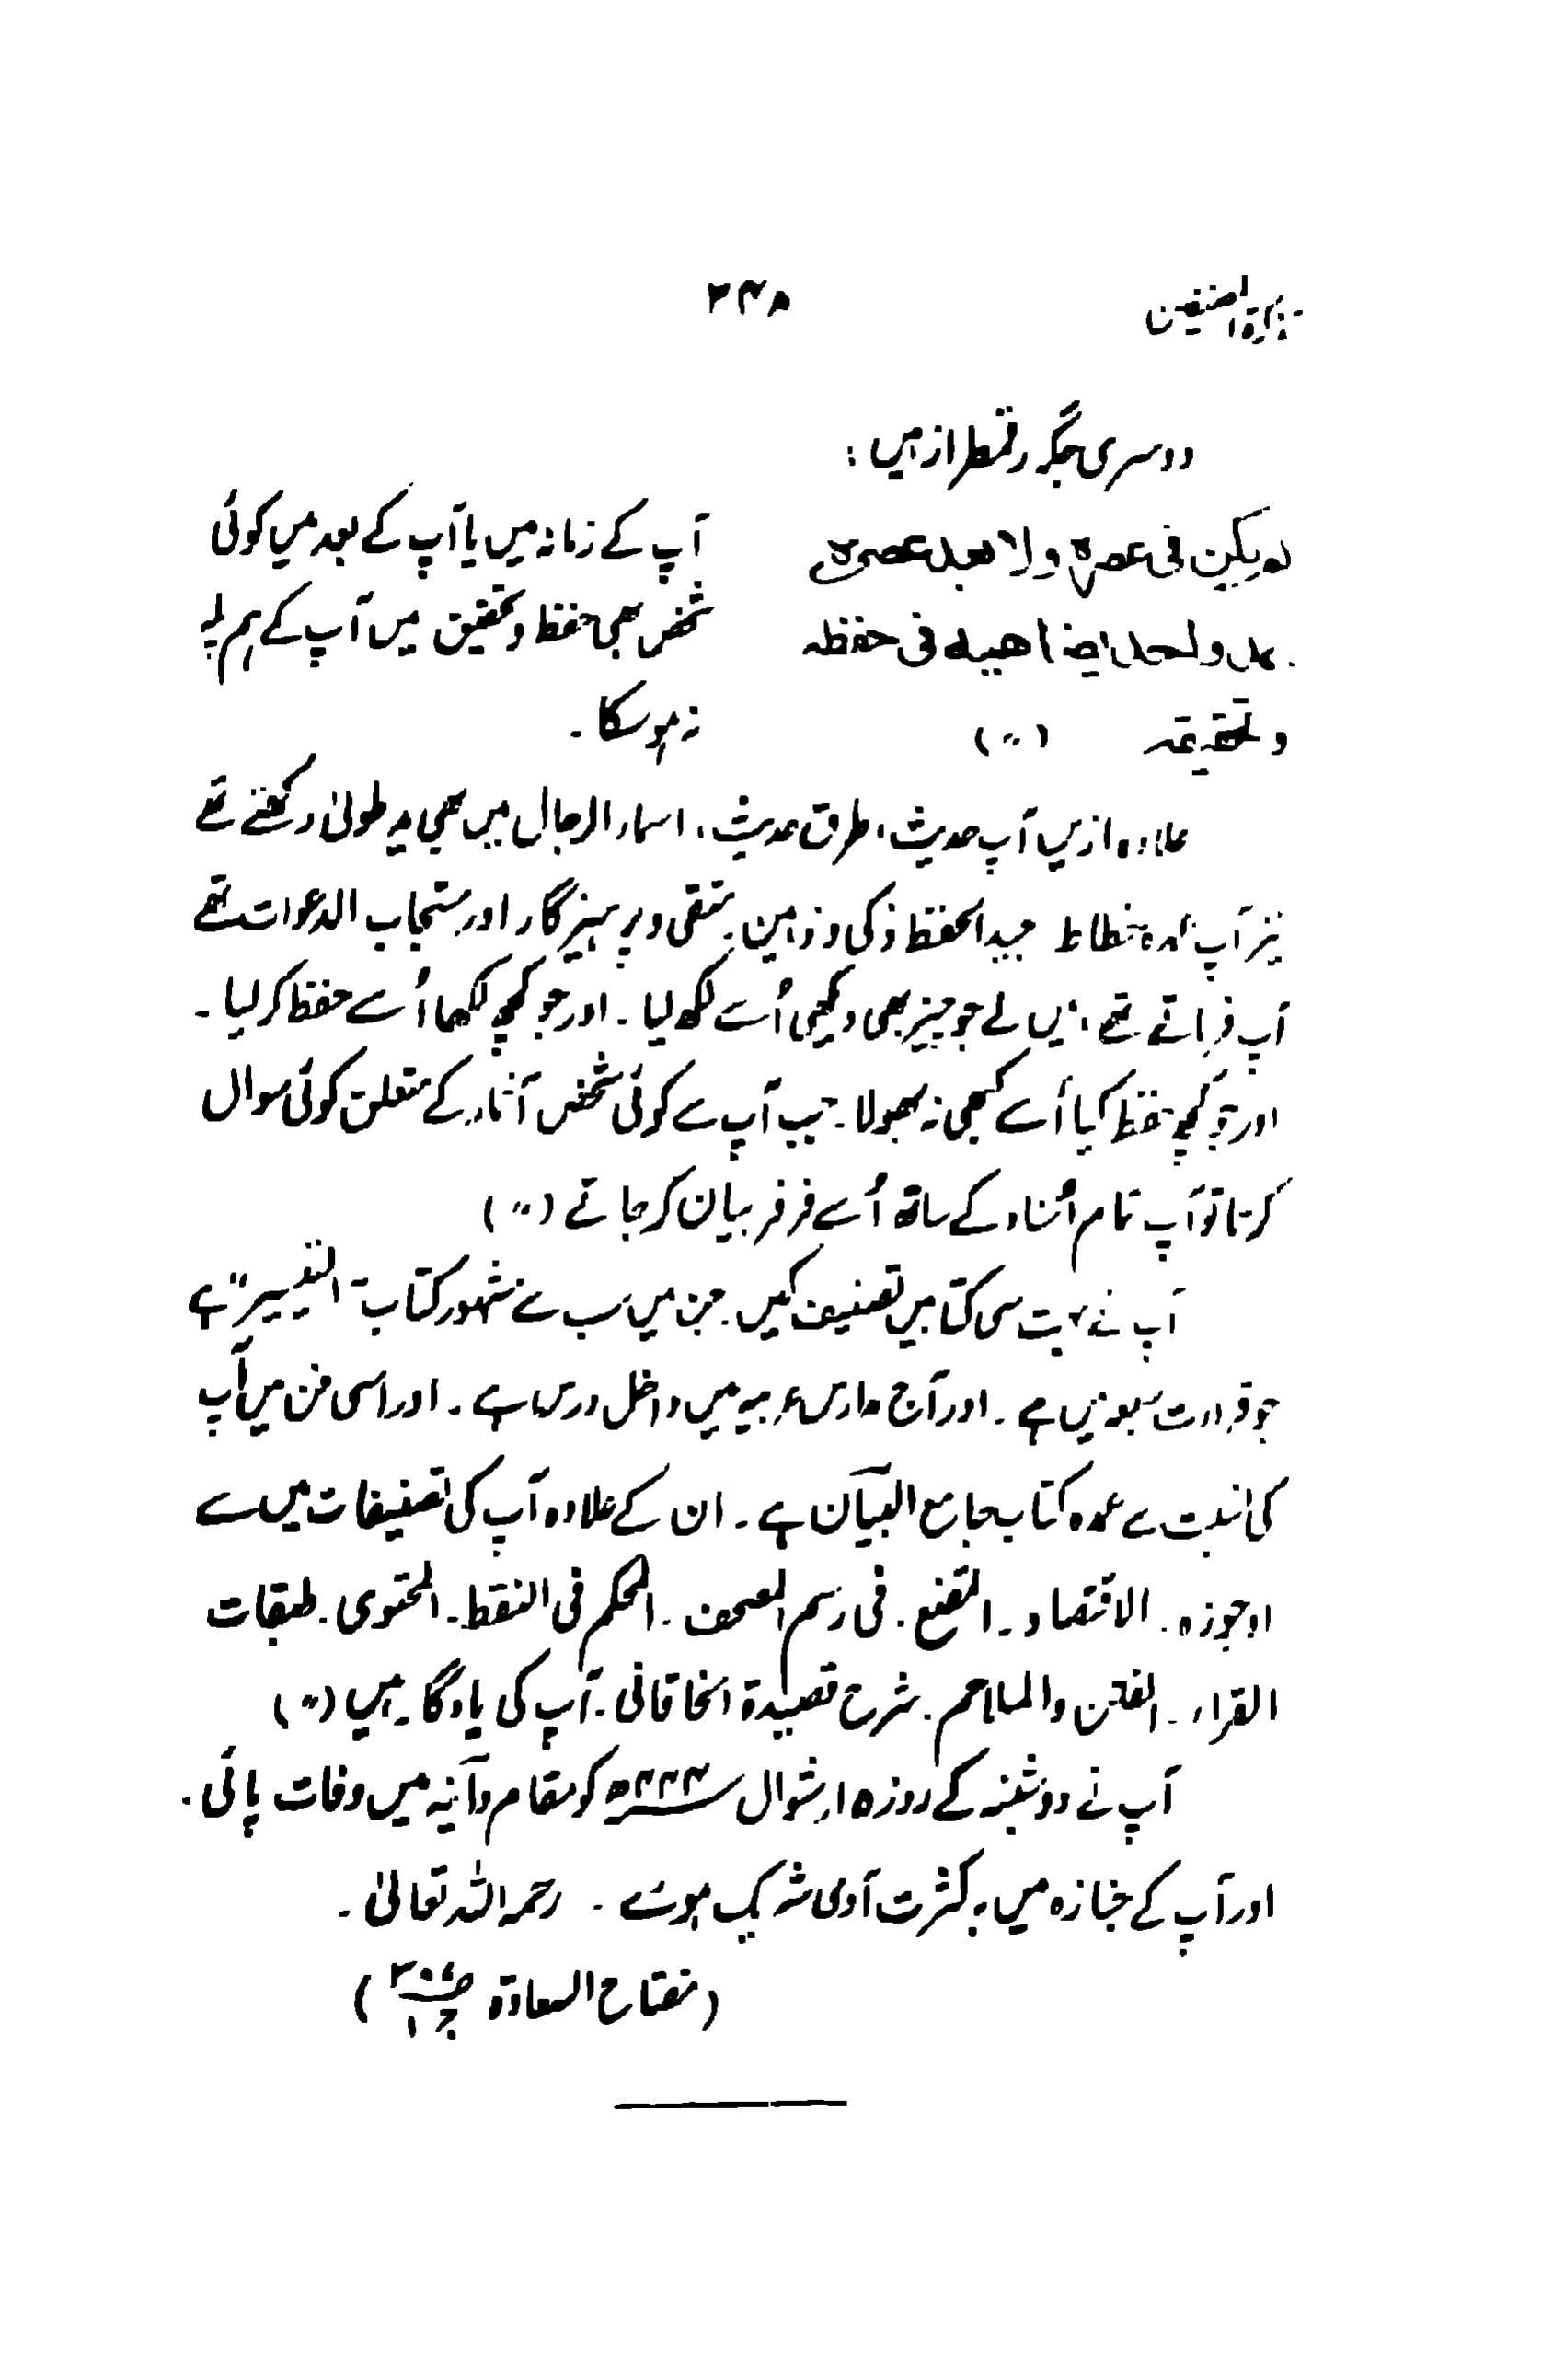 تذکرة المصنفین
۲۳۸
دوسری جگہ رقمطراز ہیں :
لم یکن فی عصرہ ولا بعد عصرہ
احد یضاھیہ فی حفظہ
وتحقیقہ (〃)
آپ کے زمانہ میں یا آپ کے بعد میں کوئی
شخص بھی حفظ و تحقیق میں آپ کے ہم پلہ
نہ ہو سکا ۔
علاوہ ازیں آپ حدیث، طرق حدیث، اسماء الرجال میں بھی ید طولیٰ رکھتے تھے
نیز آپ عمدہ خطاط جید الحفظ ذکی و ذہین متقی و پرہیزگار اور مستجاب الدعوات تھے
آپ فرماتے تھے، میں نے جو چیز بھی دیکھی اُسے لکھ لیا ۔ اور جو کچھ لکھا اُسے حفظ کر لیا ۔
اور جو کچھ حفظ کیا اُسے کبھی نہ بھولا ۔ جب آپ سے کوئی شخص آثار کے متعلق کوئی سوال
کرتا تو آپ تمام اسناد کے ساتھ اُسے فرفر بیان کر جاتے (〃)
آپ نے بہت سی کتابیں تصنیف کیں ۔ جن میں سب سے مشہور کتاب "التیسیر" ہے
جو قراءت سبعہ میں ہے ۔ اور آج مدارس عربیہ میں داخل درس ہے ۔ اور اسی فن میں آپ
کی نسبت سے عمدہ کتاب جامع البیان ہے ۔ ان کے علاوہ آپ کی تصنیفات میں سے
ارجوزہ ۔ الاقتصاد ۔ المقنع ۔ فی رسم المصحف ۔ المحکم فی النقط ۔ المحتوی ۔ طبقات
القراء ۔ الفتن والملاحم ۔ شرح قصیدة الخاقانی ۔ آپ کی یادگار ہیں (〃)
آپ نے دوشنبہ کے روز ۱۵ شوال ۴۴۴ھ کو مقام دانیہ میں وفات پائی ۔
اور آپ کے جنازہ میں بہ کثرت آدمی شریک ہوئے ۔ رحمہ اللہ تعالیٰ ۔
(مفتاح السعادة ج۱)